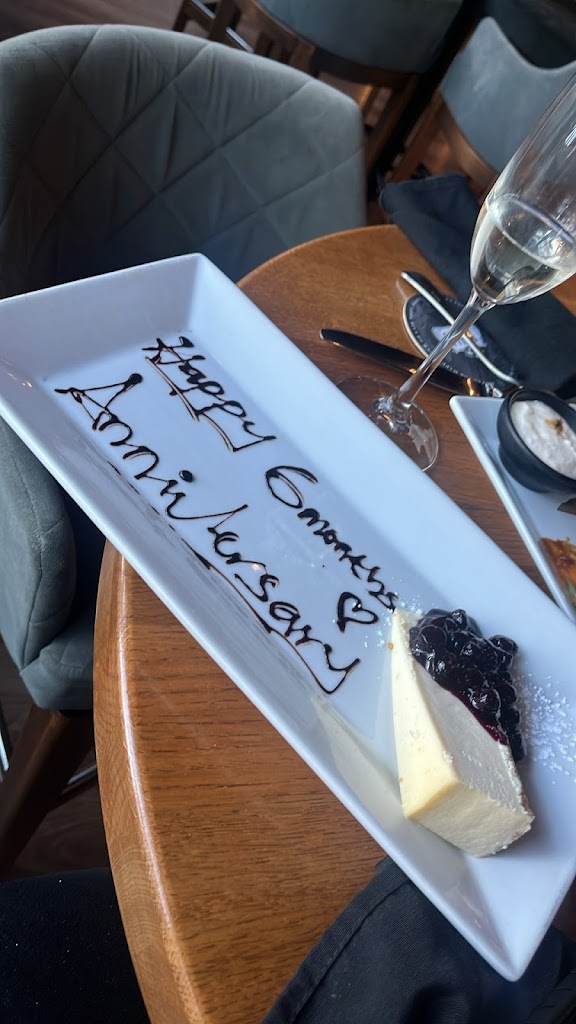 Happy 6 months ♡
Anniversary